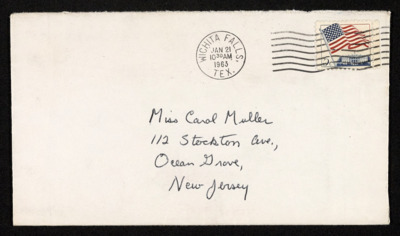 WICHITA FALLS,
JAN 21
10 30 AM
1963
TEX.
Miss Carol Muller
112 Stockton Ave.,
Ocean Grove,
New Jersey